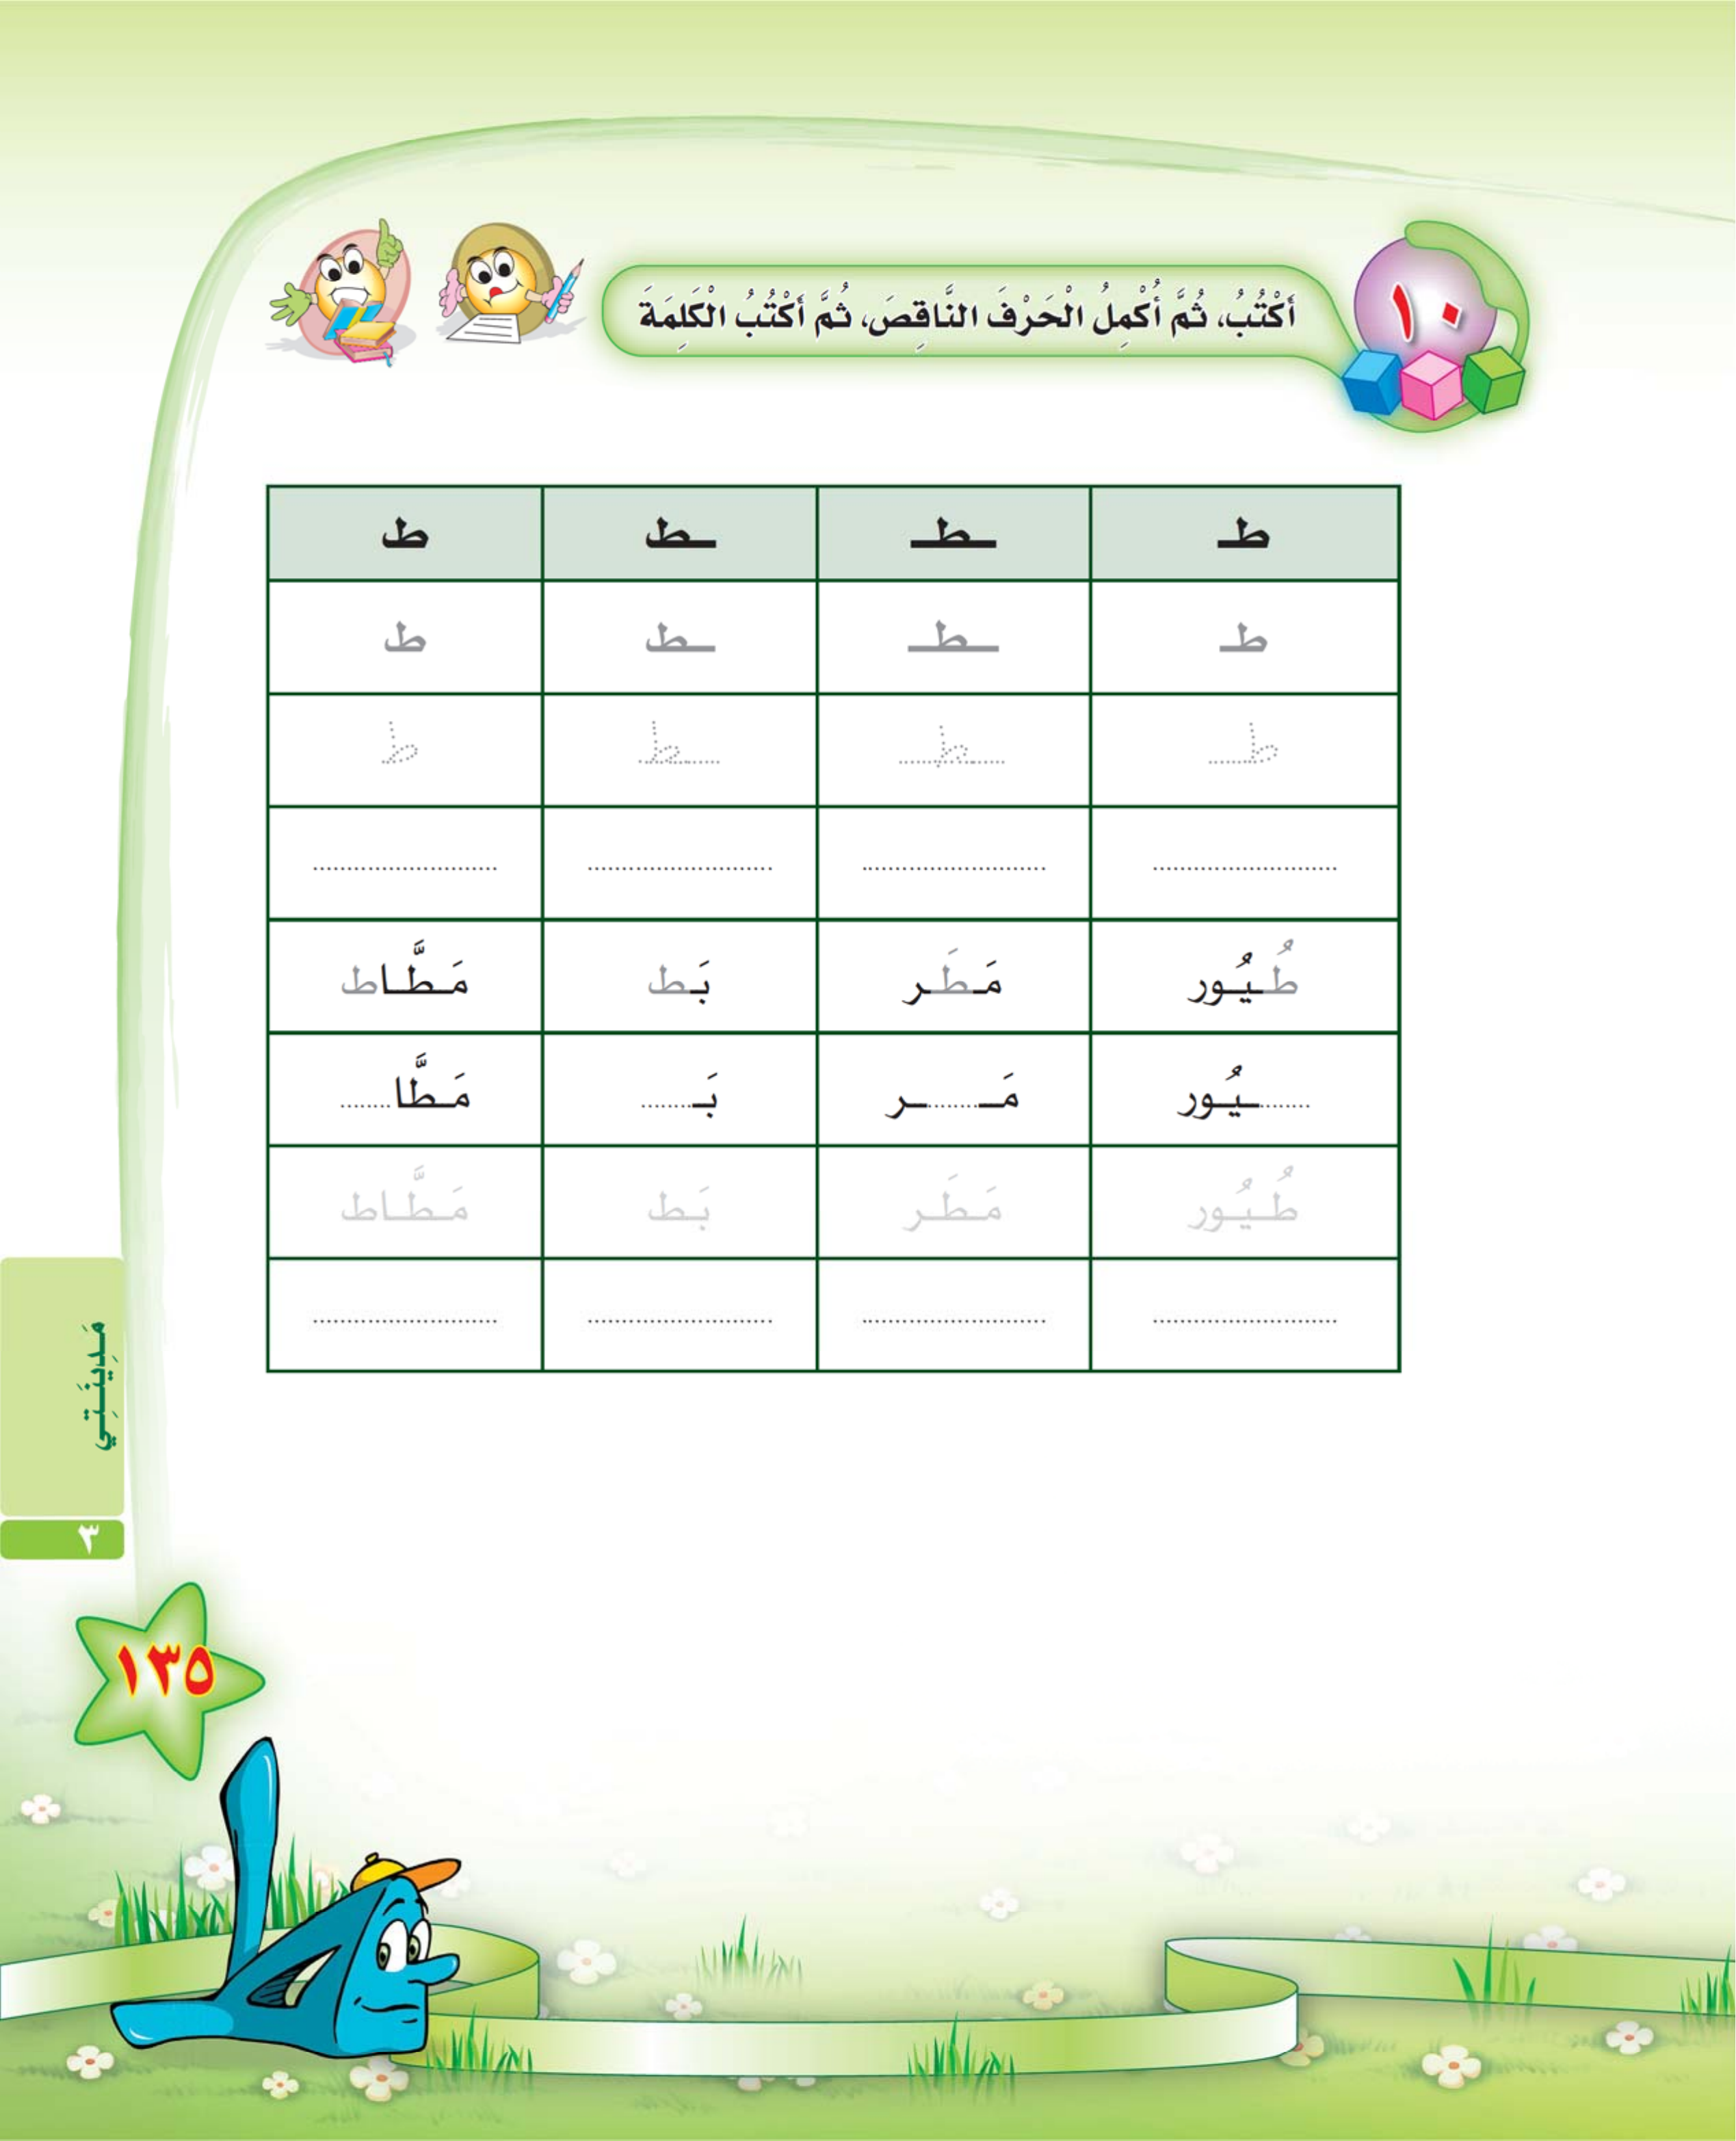 ١٠
أَكْتُبُ، ثُمَّ أُكْمِلُ الْحَرْفَ النَّاقِصَ، ثُمَّ أَكْتُبُ الْكَلِمَةَ
طـ ـطـ ـط ط
طـ ـطـ ـط ط
طـ ـطـ ـط ط
........................... ........................... ........................... ...........................
طُـيُـور مَـطَـر بَـط مَـطَّـاط
........ـيُـور مَــ........ــر بَـ........ مَـطَّا........
طُـيُـور مَـطَـر بَـط مَـطَّـاط
........................... ........................... ........................... ...........................
مَـدِينَـتِـي
٣
١٣٥